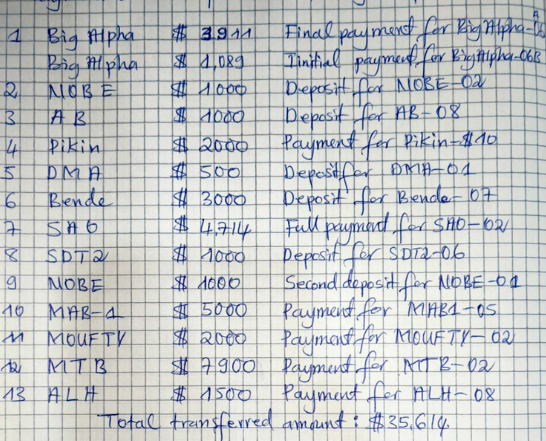 1 Big Alpha $ 3911 Final payment for BigAlpha-06A
Big Alpha $ 1,089 Tinitial payment for BigAlpha-06B
2 NOBE $ 1000 Deposit for NOBE-02
3 AB $ 1000 Deposit for AB-08
4 Pikin $ 2000 Payment for Pikin-$10
5 DMA $ 500 Deposit for DMA-01
6 Bende $ 3000 Deposit for Bende-07
7 SAO $ 4,714 Full payment for SAO-02
8 SDT2 $ 1000 Deposit for SDT2-06
9 NOBE $ 1000 Second deposit for NOBE-01
10 MAB-1 $ 5000 Payment for MAB1-05
11 MOUFTY $ 2000 Payment for MOUFTY-02
12 MTB $ 7900 Payment for MTB-02
13 ALH $ 1500 Payment for ALH-08
Total transferred amount : $35,614